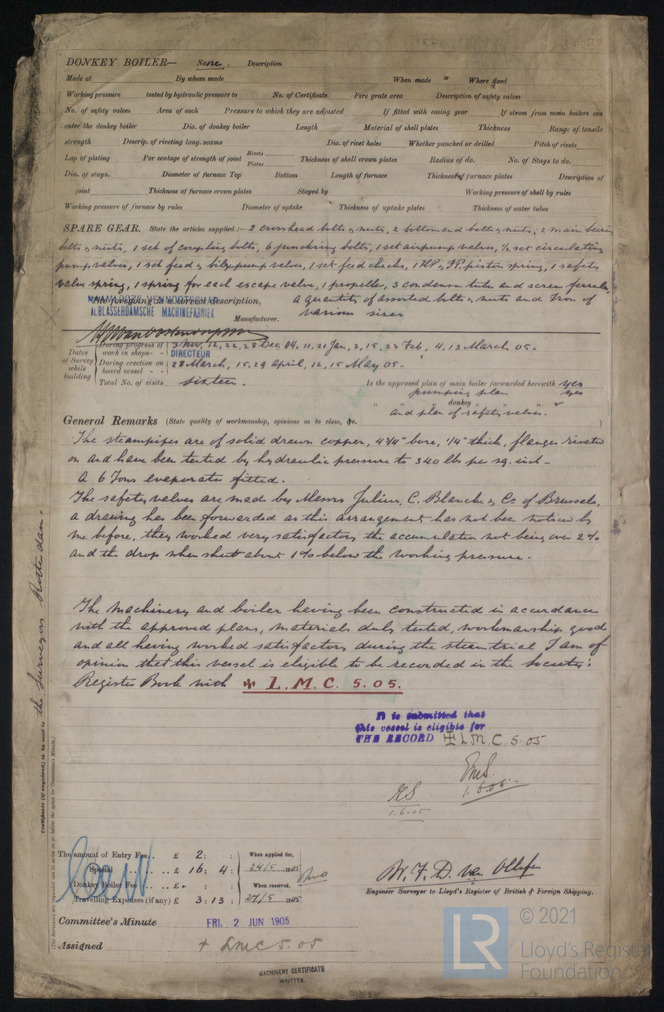 DONKEY BOILER— None. Description
Made at By whom made When made " Where fixed
Working pressure tested by hydraulic pressure to No. of Certificate Fire grate area Description of safety valves
No. of safety valves Area of each Pressure to which they are adjusted If fitted with easing gear If steam from main boilers can
enter the donkey boiler Dia. of donkey boiler Length Material of shell plates Thickness Range of tensile
strength Descrip. of riveting long. seams Dia. of rivet holes Whether punched or drilled Pitch of rivets
Lap of plating Per centage of strength of joint Rivets Plates Thickness of shell crown plates Radius of do. No. of Stays to do.
Dia. of stays. Diameter of furnace Top Bottom Length of furnace Thickness of furnace plates Description of
joint Thickness of furnace crown plates Stayed by Working pressure of shell by rules
Working pressure of furnace by rules Diameter of uptake Thickness of uptake plates Thickness of water tubes
SPARE GEAR. State the articles supplied:— 2 crosshead bolts & nuts, 2 bottom end bolts & nuts, 2 main bearing
bolts & nuts, 1 set of coupling bolts, 6 junckring bolts, 1 set airpump valves, ½ set circulating
pump valves, 1 set feed & bilgepump valves, 1 set feed checks, 1 HP & IP piston spring, 1 safety
valve spring, 1 spring for each escape valve, 1 propeller, 3 condenser tubes and screw ferrules,
The foregoing is a correct description, a quantity of assorted bolts & nuts and Iron of
NAAMLOOZE VENNOOTSCHAP
ALBLASSERDAMSCHE MACHINEFABRIEK Manufacturer. various sizes
Dates of Survey while building
During progress of work in shops - - 3 Nov, 12, 22, 28 Dec 04, 11, 21 Jan, 3, 15, 23 Feb, 4, 13 March 05.
DIRECTEUR
During erection on board vessel - - 28 March, 15, 29 April, 12, 15 May 05.
Total No. of visits sixteen. Is the approved plan of main boiler forwarded herewith yes
pumping plan yes
" " " donkey " " "
and plan of safety valves.
General Remarks (State quality of workmanship, opinions as to class, &c.
The steampipes are of solid drawn copper, 4¾" bore, ¼" thick, flanges riveted
on and have been tested by hydraulic pressure to 340 lbs per sq. inch.
A 6 Tons evaporator fitted.
The safety valves are made by Messrs Julien, C. Blanche & Co of Brussels,
a drawing has been forwarded as this arrangement has not been noticed by
me before, they worked very satisfactory the accumulation not being over 2%
and the drop when shut about 1% below the working pressure.
The Machinery and boiler having been constructed in accordance
with the approved plans, materials duly tested, workmanship good
and all having worked satisfactory during the steam trial I am of
opinion that this vessel is eligible to be recorded in the Societies:
Register Book with ✠ L.M.C. 5.05.
It is submitted that
this vessel is eligible for
THE RECORD ✠ L.M.C. 5.05
1.6.05
1.6.05
Certificate (if required) to be sent to the Surveyors Rotterdam.
The amount of Entry Fee . . £ 2 : : When applied for,
Special . . £ 16 : 4 : 24/5 1905
Donkey Boiler Fee . . £ - : : When received,
Travelling Expenses (if any) £ 3 : 13 : 27/5 1905
W. F. D. van Ollefen
Engineer Surveyor to Lloyd's Register of British & Foreign Shipping.
Committee's Minute FRI. 2 JUN 1905
Assigned + LMC 5.05
MACHINERY CERTIFICATE
WRITTEN
LR © 2021
Lloyd's Register
Foundation